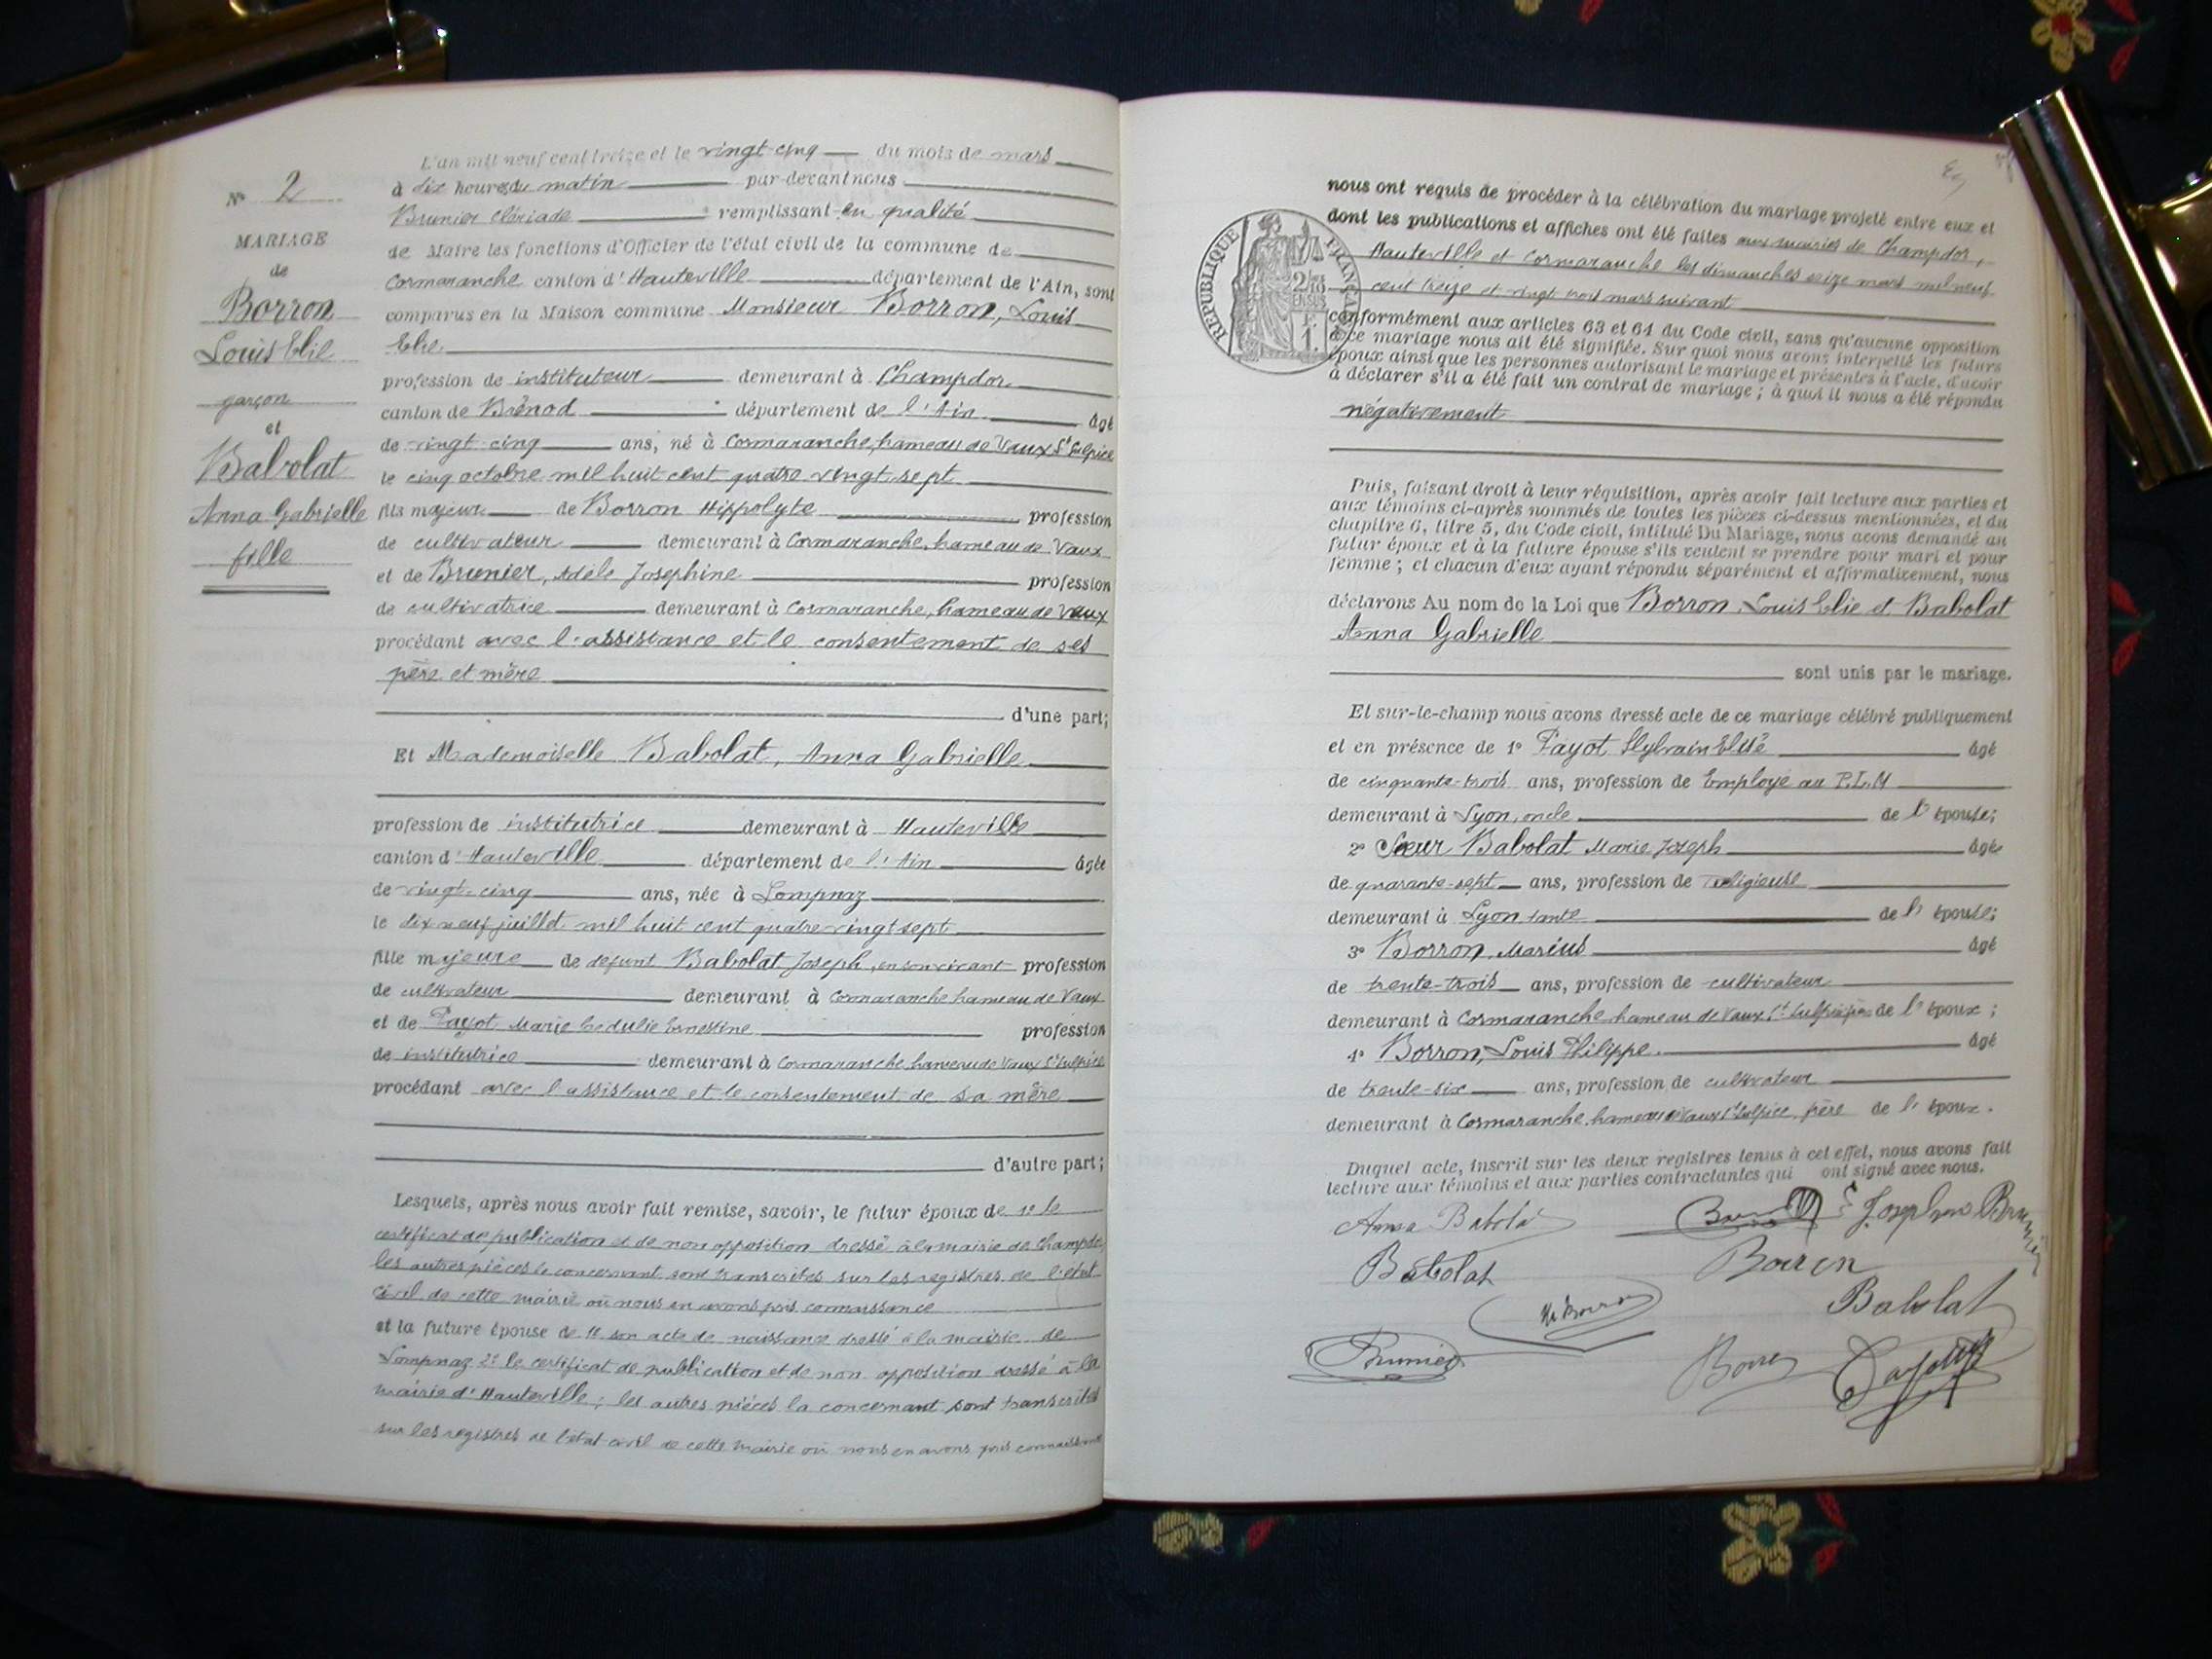 N° 2
MARIAGE
de
Borron
Louis Elie
garçon
et
Babolat
Anna Gabrielle
fille
L'an mil neuf cent treize et le vingt cinq du mois de mars
à dix heures du matin par-devant nous
Brunier Clériade remplissant en qualité
de Maire les fonctions d'Officier de l'état civil de la commune de
Cormaranche canton d'Hauteville département de l'Ain, sont
comparus en la Maison commune Monsieur Borron, Louis
Elie
profession de instituteur demeurant à Champdor
canton de Brénod département de l'Ain âgé
de vingt-cinq ans, né à Cormaranche, hameau de Vaux St Sulpice
le cinq octobre mil huit cent quatre-vingt-sept
fils majeur de Borron Hippolyte profession
de cultivateur demeurant à Cormaranche, hameau de Vaux
et de Brunier, Adèle Joséphine profession
de cultivatrice demeurant à Cormaranche, hameau de Vaux
procédant avec l'assistance et le consentement de ses
père et mère
d'une part;
Et Mademoiselle Babolat, Anna Gabrielle
profession de institutrice demeurant à Hauteville
canton d'Hauteville département de l'Ain âgée
de vingt-cinq ans, née à Lompnaz
le dix neuf juillet mil huit cent quatre vingt sept
fille majeure de défunt Babolat Joseph, en son vivant profession
de cultivateur demeurant à Cormaranche hameau de Vaux
et de Payot Marie Ernestine profession
de institutrice demeurant à Cormaranche hameau de Vaux St Sulpice
procédant avec l'assistance et le consentement de sa mère
d'autre part;
Lesquels, après nous avoir fait remise, savoir, le futur époux de 1° le
certificat de publication et de non opposition dressé à la mairie de Champdor
les autres pièces le concernant sont transcrites sur les registres de l'état
civil de cette mairie où nous en avons pris connaissance
et la future épouse de 1° son acte de naissance dressé à la mairie de
Lompnaz 2° le certificat de publication et de non opposition dressé à la
mairie d'Hauteville; les autres pièces la concernant sont transcrites
sur les registres de l'état-civil de cette mairie où nous en avons pris connaissance
nous ont requis de procéder à la célébration du mariage projeté entre eux et
dont les publications et affiches ont été faites aux mairies de Champdor,
Hauteville et Cormaranche les dimanches seize mars mil neuf
cent treize et vingt trois mars suivant
conformément aux articles 63 et 64 du Code civil, sans qu'aucune opposition
à ce mariage nous ait été signifiée. Sur quoi nous avons interpellé les futurs
époux ainsi que les personnes autorisant le mariage et présentes à l'acte, d'avoir
à déclarer s'il a été fait un contrat de mariage; à quoi il nous a été répondu
négativement
REPUBLIQUE FRANÇAISE
2/10
EN SUS
F.
1.
Puis, faisant droit à leur réquisition, après avoir fait lecture aux parties et
aux témoins ci-après nommés de toutes les pièces ci-dessus mentionnées, et du
chapitre 6, titre 5, du Code civil, intitulé Du Mariage, nous avons demandé au
futur époux et à la future épouse s'ils veulent se prendre pour mari et pour
femme; et chacun d'eux ayant répondu séparément et affirmativement, nous
déclarons Au nom de la Loi que Borron, Louis Elie et Babolat
Anna Gabrielle
sont unis par le mariage.
Et sur-le-champ nous avons dressé acte de ce mariage célébré publiquement
et en présence de 1° Payot Sylvain Elisé âgé
de cinquante-trois ans, profession de Employé au P.L.M
demeurant à Lyon, oncle de l'épouse;
2° Sœur Babolat Marie Joseph âgée
de quarante-sept ans, profession de religieuse
demeurant à Lyon tante de l'épouse;
3° Borron, Marius âgé
de trente-trois ans, profession de cultivateur
demeurant à Cormaranche hameau de Vaux St Sulpice de l'époux;
4° Borron, Louis Philippe âgé
de trente-six ans, profession de cultivateur
demeurant à Cormaranche, hameau de Vaux St Sulpice, frère de l'époux.
Duquel acte, inscrit sur les deux registres tenus à cet effet, nous avons fait
lecture aux témoins et aux parties contractantes qui ont signé avec nous.
Anna Babolat Joséphine Brunier
Babolat Borron
Babolat
Brunier